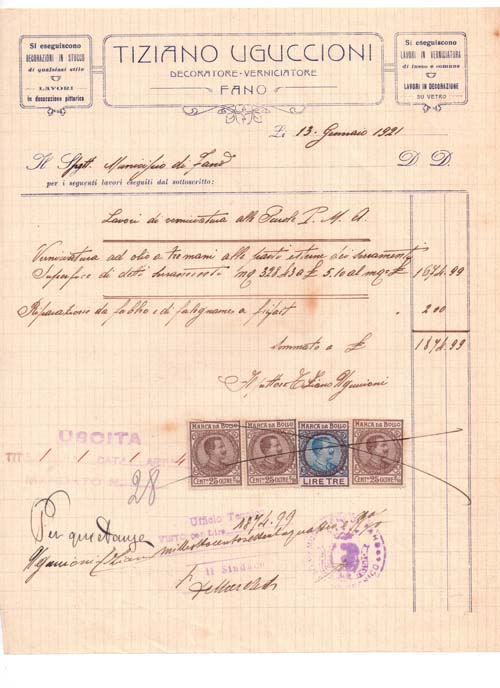 Si eseguiscono
DECORAZIONI IN STUCCO
di qualsiasi stile
LAVORI
in decorazione pittorica
TIZIANO UGUCCIONI
DECORATORE-VERNICIATORE
FANO
Si eseguiscono
LAVORI IN VERNICIATURA
di lusso e comune
LAVORI IN DECORAZIONE
SU VETRO
Lì 13 Gennaio 1921
Il Spett. Municipio di Fano D. D.
per i seguenti lavori eseguiti dal sottoscritto:
Lavori di verniciatura alle Scuole P. M. A.
Verniciatura ad olio a tre mani alle parti esterne dei serramenti
Superfice di detti serramenti mq 328.43 a £ 5.10 al mq £ 1674.99
Riparazione da fabbro e di falegname a 200
Sommato a £ 1874.99
Tiziano Uguccioni
USCITA
28
MARCA DA BOLLO
CENT.MI 25 OLTRE
MARCA DA BOLLO
CENT.MI 25 OLTRE
MARCA DA BOLLO
LIRE TRE
MARCA DA BOLLO
CENT.MI 25 OLTRE
Per quietanza
Uguccioni Tiziano
Ufficio
VISTO per Lire 1874.99
Il Sindaco